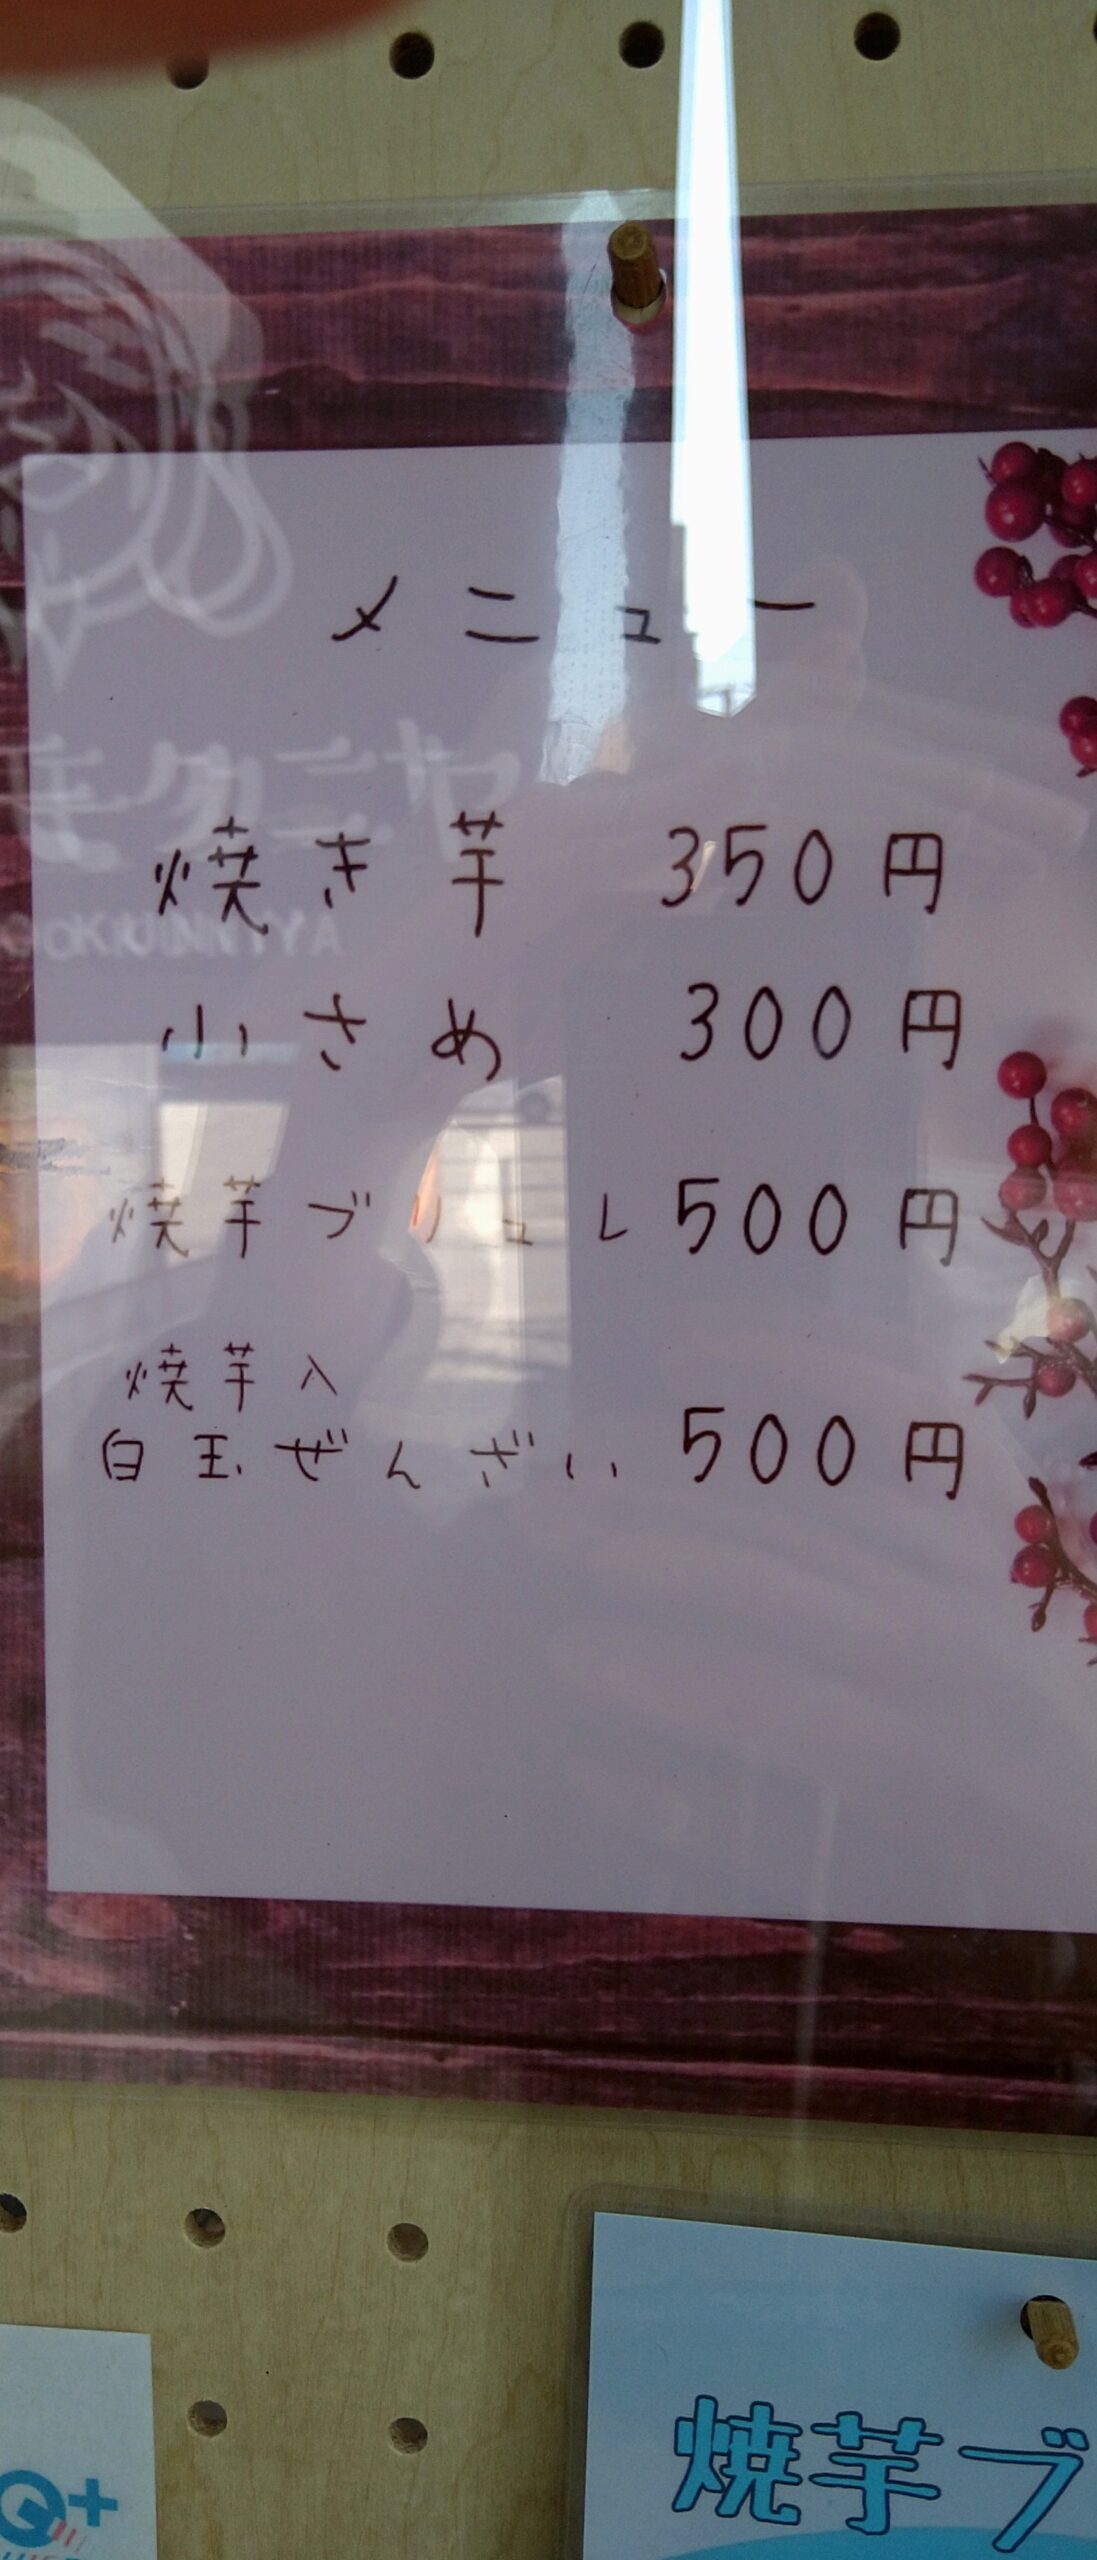 メニュー
焼き芋 350円
小さめ 300円
焼芋ブリュレ 500円
焼芋入
白玉ぜんざい 500円
焼芋ブ
Q+